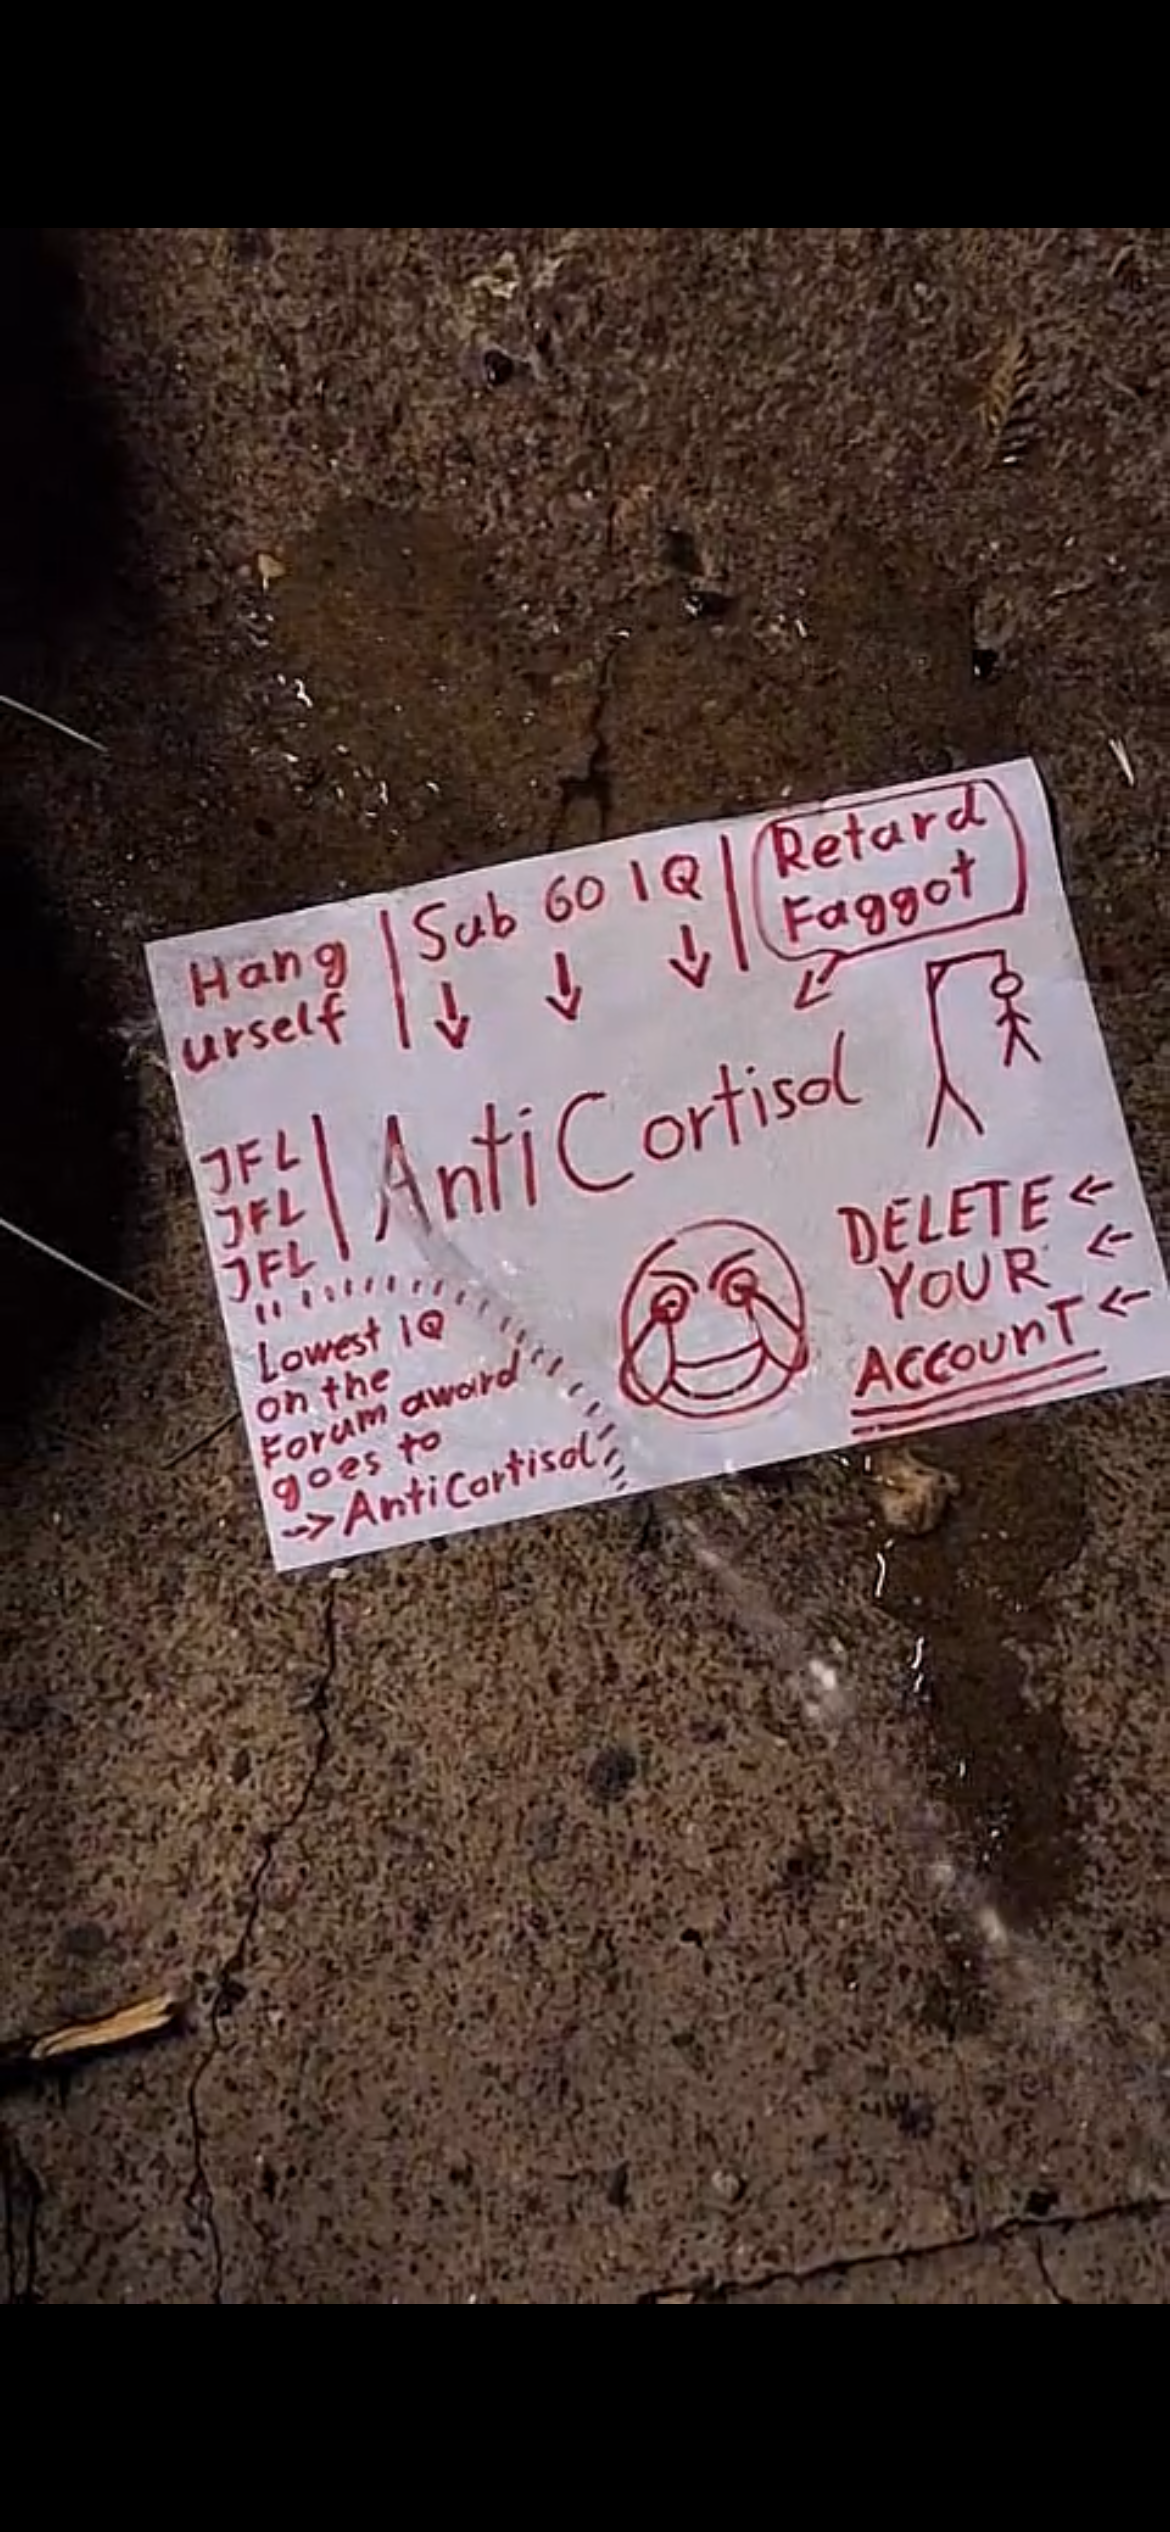 Hang
urself
Sub 60 IQ
Retard
Faggot
JFL
JFL
JFL
AntiCortisol
Lowest IQ
on the
Forum award
goes to
AntiCortisol
DELETE
YOUR
ACCOUNT